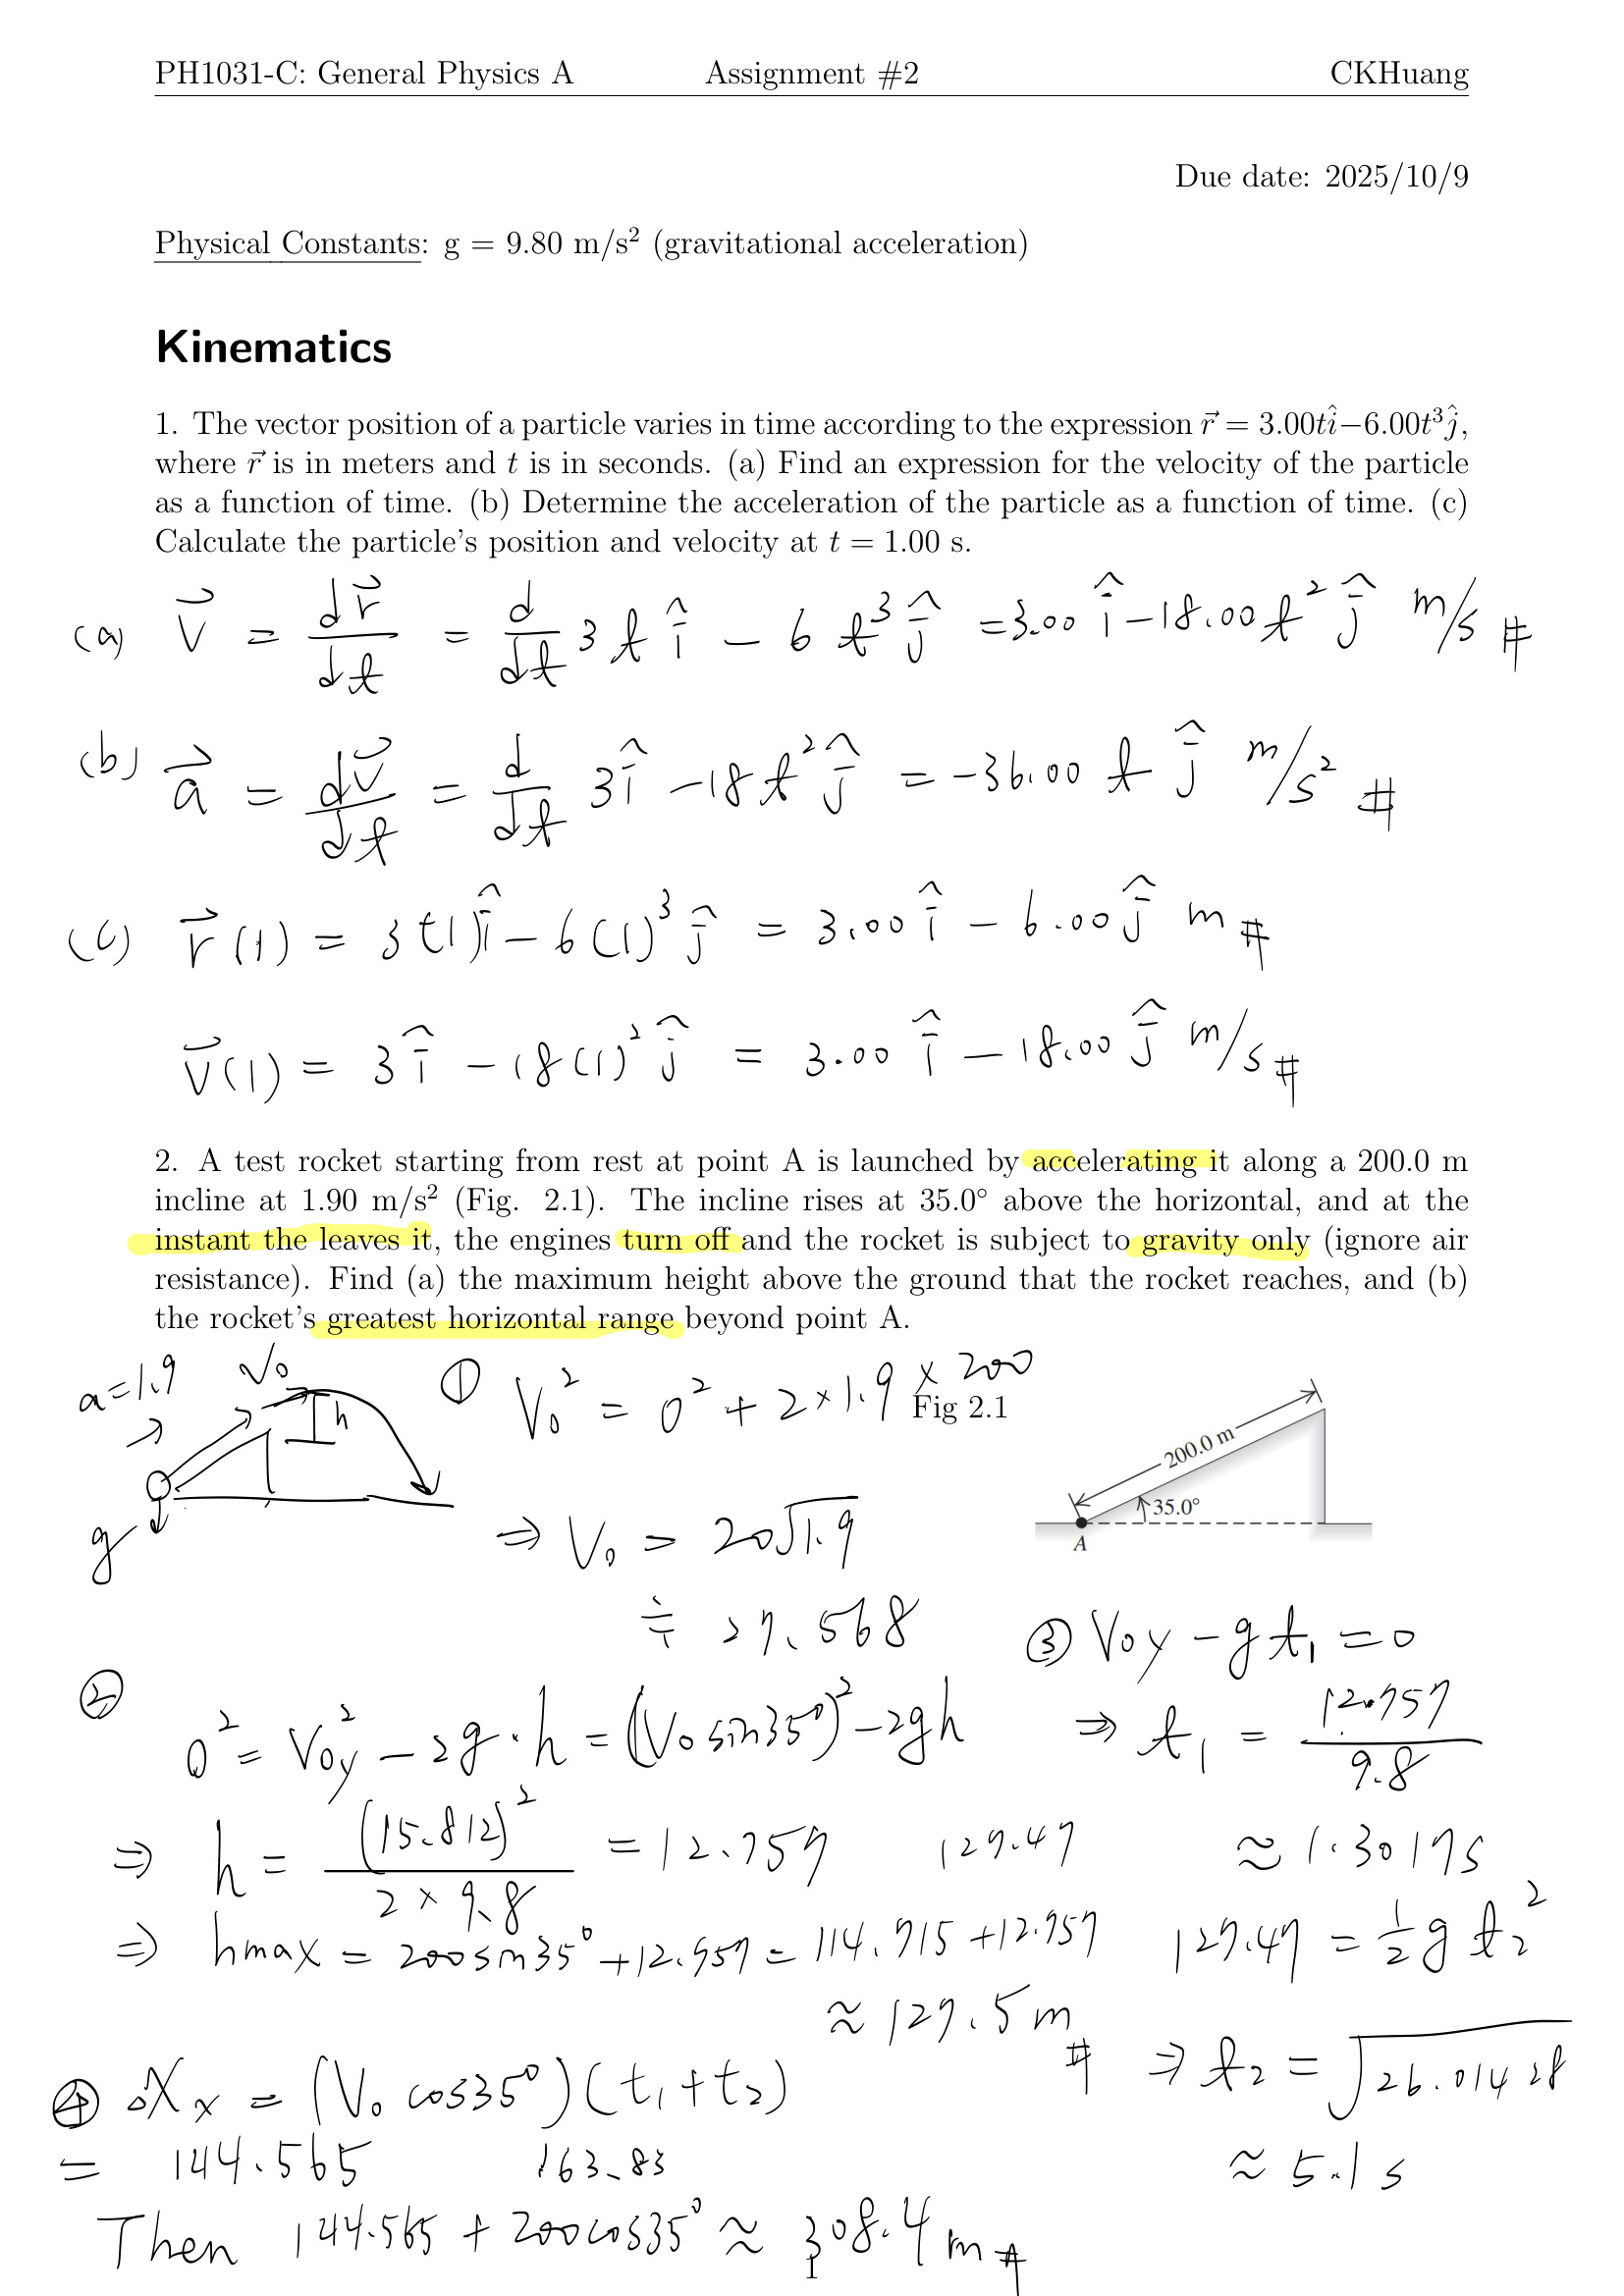 PH1031-C: General Physics A Assignment #2 CKHuang
Due date: 2025/10/9
Physical Constants: g = 9.80 m/s² (gravitational acceleration)
Kinematics
1. The vector position of a particle varies in time according to the expression r⃗ = 3.00tî−6.00t³ĵ,
where r⃗ is in meters and t is in seconds. (a) Find an expression for the velocity of the particle
as a function of time. (b) Determine the acceleration of the particle as a function of time. (c)
Calculate the particle's position and velocity at t = 1.00 s.
(a) v⃗ = dr⃗/dt = d/dt 3t î − 6 t³ ĵ = 3.00 î − 18.00 t² ĵ m/s #
(b) a⃗ = dv⃗/dt = d/dt 3î − 18 t² ĵ = −36.00 t ĵ m/s² #
(c) r⃗(1) = 3(1)î − 6(1)³ ĵ = 3.00 î − 6.00 ĵ m #
v⃗(1) = 3 î − 18(1)² ĵ = 3.00 î − 18.00 ĵ m/s #
2. A test rocket starting from rest at point A is launched by accelerating it along a 200.0 m
incline at 1.90 m/s² (Fig. 2.1). The incline rises at 35.0° above the horizontal, and at the
instant the leaves it, the engines turn off and the rocket is subject to gravity only (ignore air
resistance). Find (a) the maximum height above the ground that the rocket reaches, and (b)
the rocket's greatest horizontal range beyond point A.
a=1.9 V₀ h g
① V₀² = 0² + 2×1.9 × 200
Fig 2.1
200.0 m
35.0°
A
⇒ V₀ = 20√1.9
≑ 27.568
② 0² = V₀y² − 2g·h = (V₀ sin35°)² − 2gh
⇒ h = (15.812)² / 2 × 9.8 = 12.757 127.47
⇒ hmax = 200sin35° + 12.757 = 114.715 + 12.757
≈ 127.5 m #
③ V₀y − g t₁ = 0
⇒ t₁ = 12.757 / 9.8
≈ 1.3017 s
127.47 = ½ g t₂²
⇒ t₂ = √26.01428
≈ 5.1 s
④ ΔXx = (V₀ cos35°)(t₁+t₂)
= 144.565 163.83
Then 144.565 + 200cos35° ≈ 308.4 m #
1